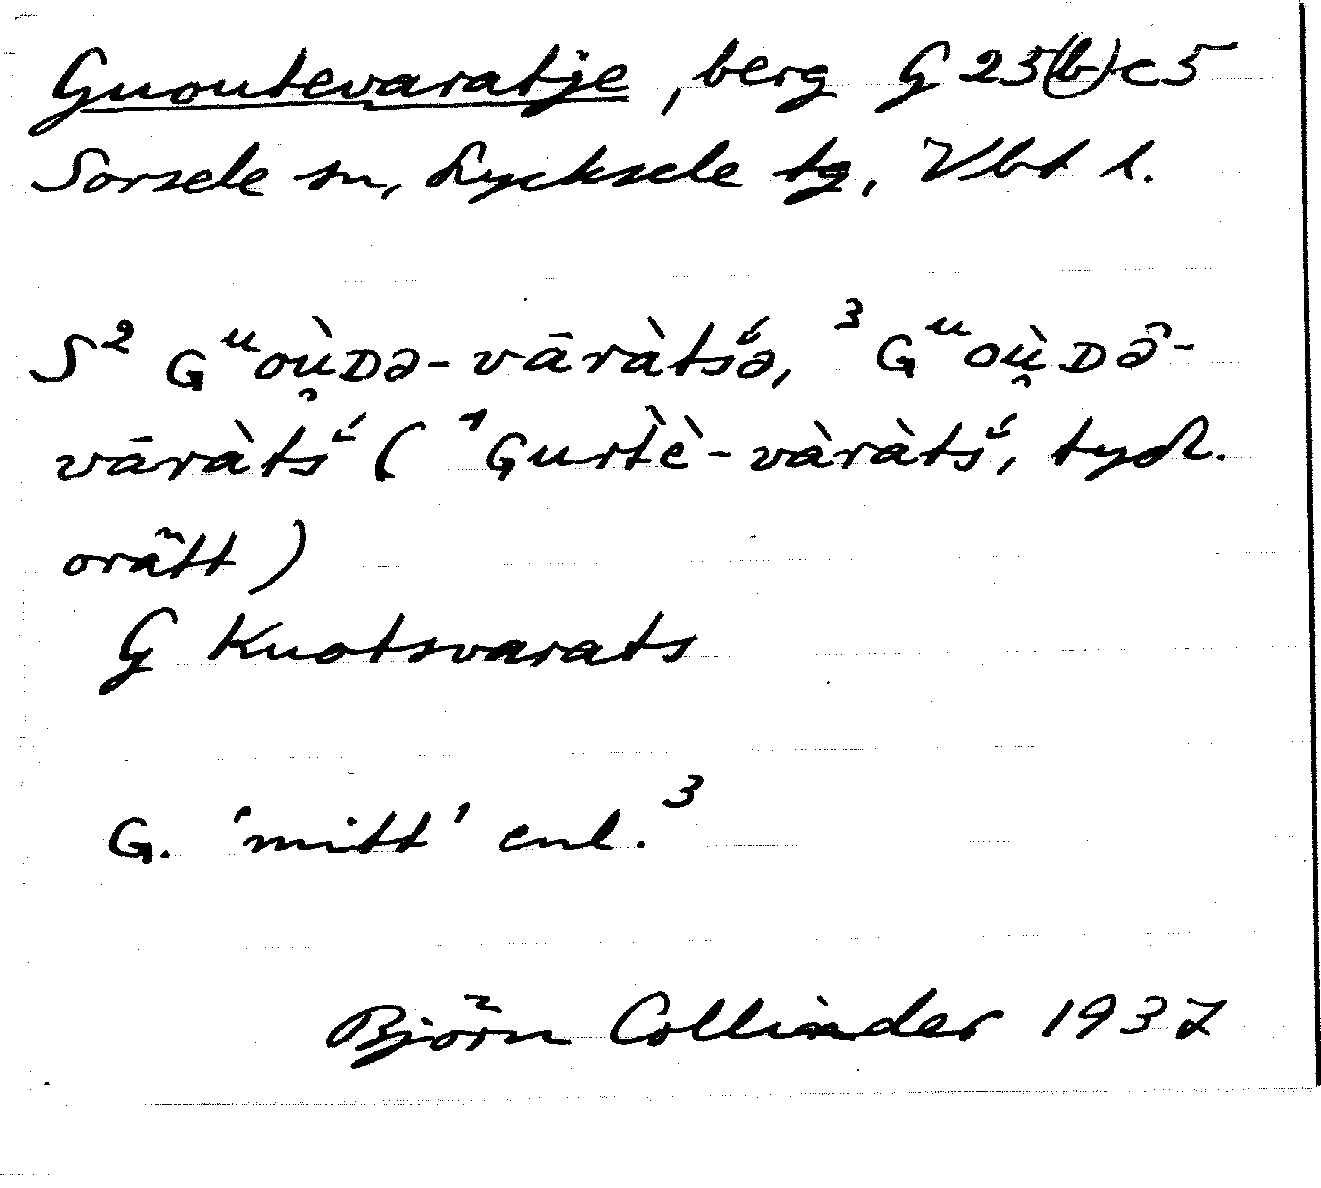 Guoutevaratje, berg G 25(b)c5
Sorsele sn, Lycksele tg, Vbt l.
S² Gᵘoù̯Də-vāràtśə, ³Gᵘoù̯Də̂-
vāràtś (¹Gurtè-vàràtś, tydl.
orätt)
G Kuotsvarats
G. 'mitt' enl.³
Björn Collinder 1937